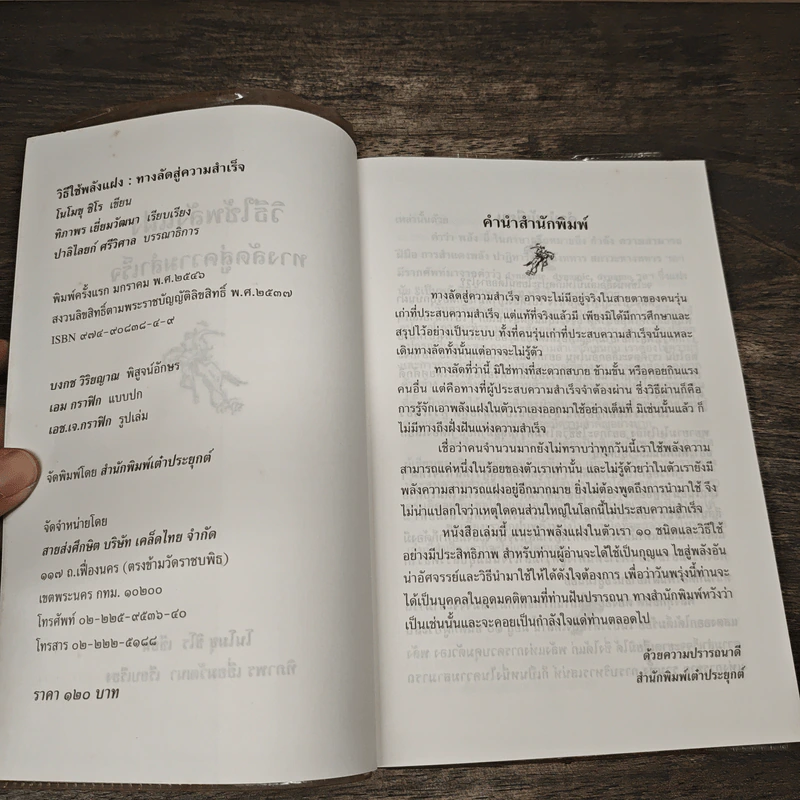 วิธีใช้พลังแฝง : ทางลัดสู่ความสำเร็จ
โนโมซุ ชิโร เขียน
ทิภาพร เยี่ยมวัฒนา เรียบเรียง
ปาลิไลยก์ ศรีวิศาล บรรณาธิการ
พิมพ์ครั้งแรก มกราคม พ.ศ.๒๕๔๖
สงวนลิขสิทธิ์ตามพระราชบัญญัติลิขสิทธิ์ พ.ศ.๒๕๓๗
ISBN ๙๗๔-๙๐๘๓๘-๔-๙
บงกช วิริยญาณ พิสูจน์อักษร
เอม กราฟิก แบบปก
เอช.เจ.กราฟิก รูปเล่ม
จัดพิมพ์โดย สำนักพิมพ์เต๋าประยุกต์
จัดจำหน่ายโดย
สายส่งศึกษิต บริษัท เคล็ดไทย จำกัด
๑๑๗ ถ.เฟื่องนคร (ตรงข้ามวัดราชบพิธ)
เขตพระนคร กทม. ๑๐๒๐๐
โทรศัพท์ ๐๒-๒๒๕-๙๕๓๖-๔๐
โทรสาร ๐๒-๒๒๒-๕๑๘๘
ราคา ๑๒๐ บาท
คำนำสำนักพิมพ์
ทางลัดสู่ความสำเร็จ อาจจะไม่มีอยู่จริงในสายตาของคนรุ่น
เก่าที่ประสบความสำเร็จ แต่แท้ที่จริงแล้วมี เพียงมิได้มีการศึกษาและ
สรุปไว้อย่างเป็นระบบ ทั้งที่คนรุ่นเก่าที่ประสบความสำเร็จนั่นแหละ
เดินทางลัดทั้งนั้นแต่อาจจะไม่รู้ตัว
ทางลัดที่ว่านี้ มิใช่ทางที่สะดวกสบาย ข้ามขั้น หรือคอยกินแรง
คนอื่น แต่คือทางที่ผู้ประสบความสำเร็จจำต้องผ่าน ซึ่งวิธีผ่านก็คือ
การรู้จักเอาพลังแฝงในตัวเราเองออกมาใช้อย่างเต็มที่ มิเช่นนั้นแล้ว ก็
ไม่มีทางถึงฝั่งฝันแห่งความสำเร็จ
เชื่อว่าคนจำนวนมากยังไม่ทราบว่าทุกวันนี้เราใช้พลังความ
สามารถแค่หนึ่งในร้อยของตัวเราเท่านั้น และไม่รู้ด้วยว่าในตัวเรายังมี
พลังความสามารถแฝงอยู่อีกมากมาย ยิ่งไม่ต้องพูดถึงการนำมาใช้ จึง
ไม่น่าแปลกใจว่าเหตุใดคนส่วนใหญ่ในโลกนี้ไม่ประสบความสำเร็จ
หนังสือเล่มนี้ แนะนำพลังแฝงในตัวเรา ๑๐ ชนิดและวิธีใช้
อย่างมีประสิทธิภาพ สำหรับท่านผู้อ่านจะได้ใช้เป็นกุญแจ ไขสู่พลังอัน
น่าอัศจรรย์และวิธีนำมาใช้ให้ได้ดั่งใจต้องการ เพื่อว่าวันพรุ่งนี้ท่านจะ
ได้เป็นบุคคลในอุดมคติตามที่ท่านฝันปรารถนา ทางสำนักพิมพ์หวังว่า
เป็นเช่นนั้นและจะคอยเป็นกำลังใจแด่ท่านตลอดไป
ด้วยความปรารถนาดี
สำนักพิมพ์เต๋าประยุกต์